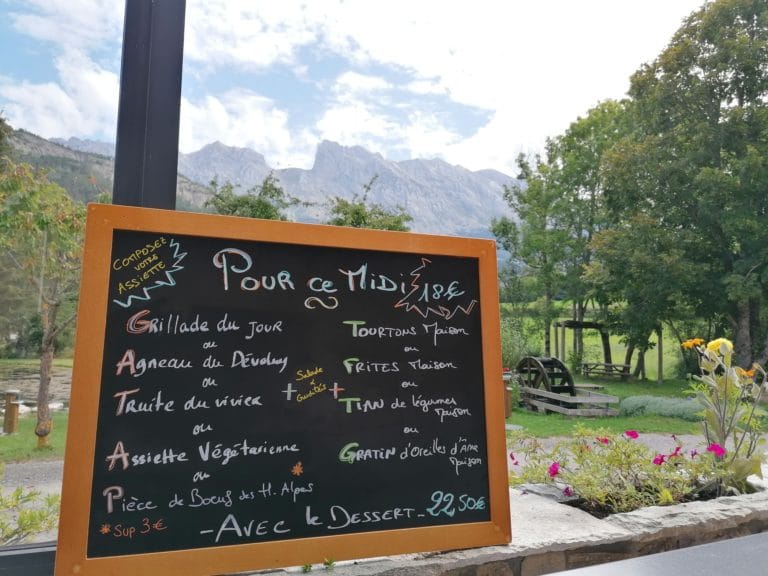 COMPOSEZ
VOTRE
ASSIETTE
POUR CE MIDI 18€
GRILLADE DU JOUR
ou
AGNEAU DU DÉVOLUY
ou
TRUITE DU VIVIER
ou
ASSIETTE VÉGÉTARIENNE
ou
PIÈCE DE BOEUF DES H. ALPES *
* Sup 3€
+ Salade & Crudités +
TOURTONS MAISON
ou
FRITES MAISON
ou
TIAN DE légumes
MAISON
ou
GRATIN d'OREILLES d'ÂNE
MAISON
- AVEC le DESSERT - 22,50€